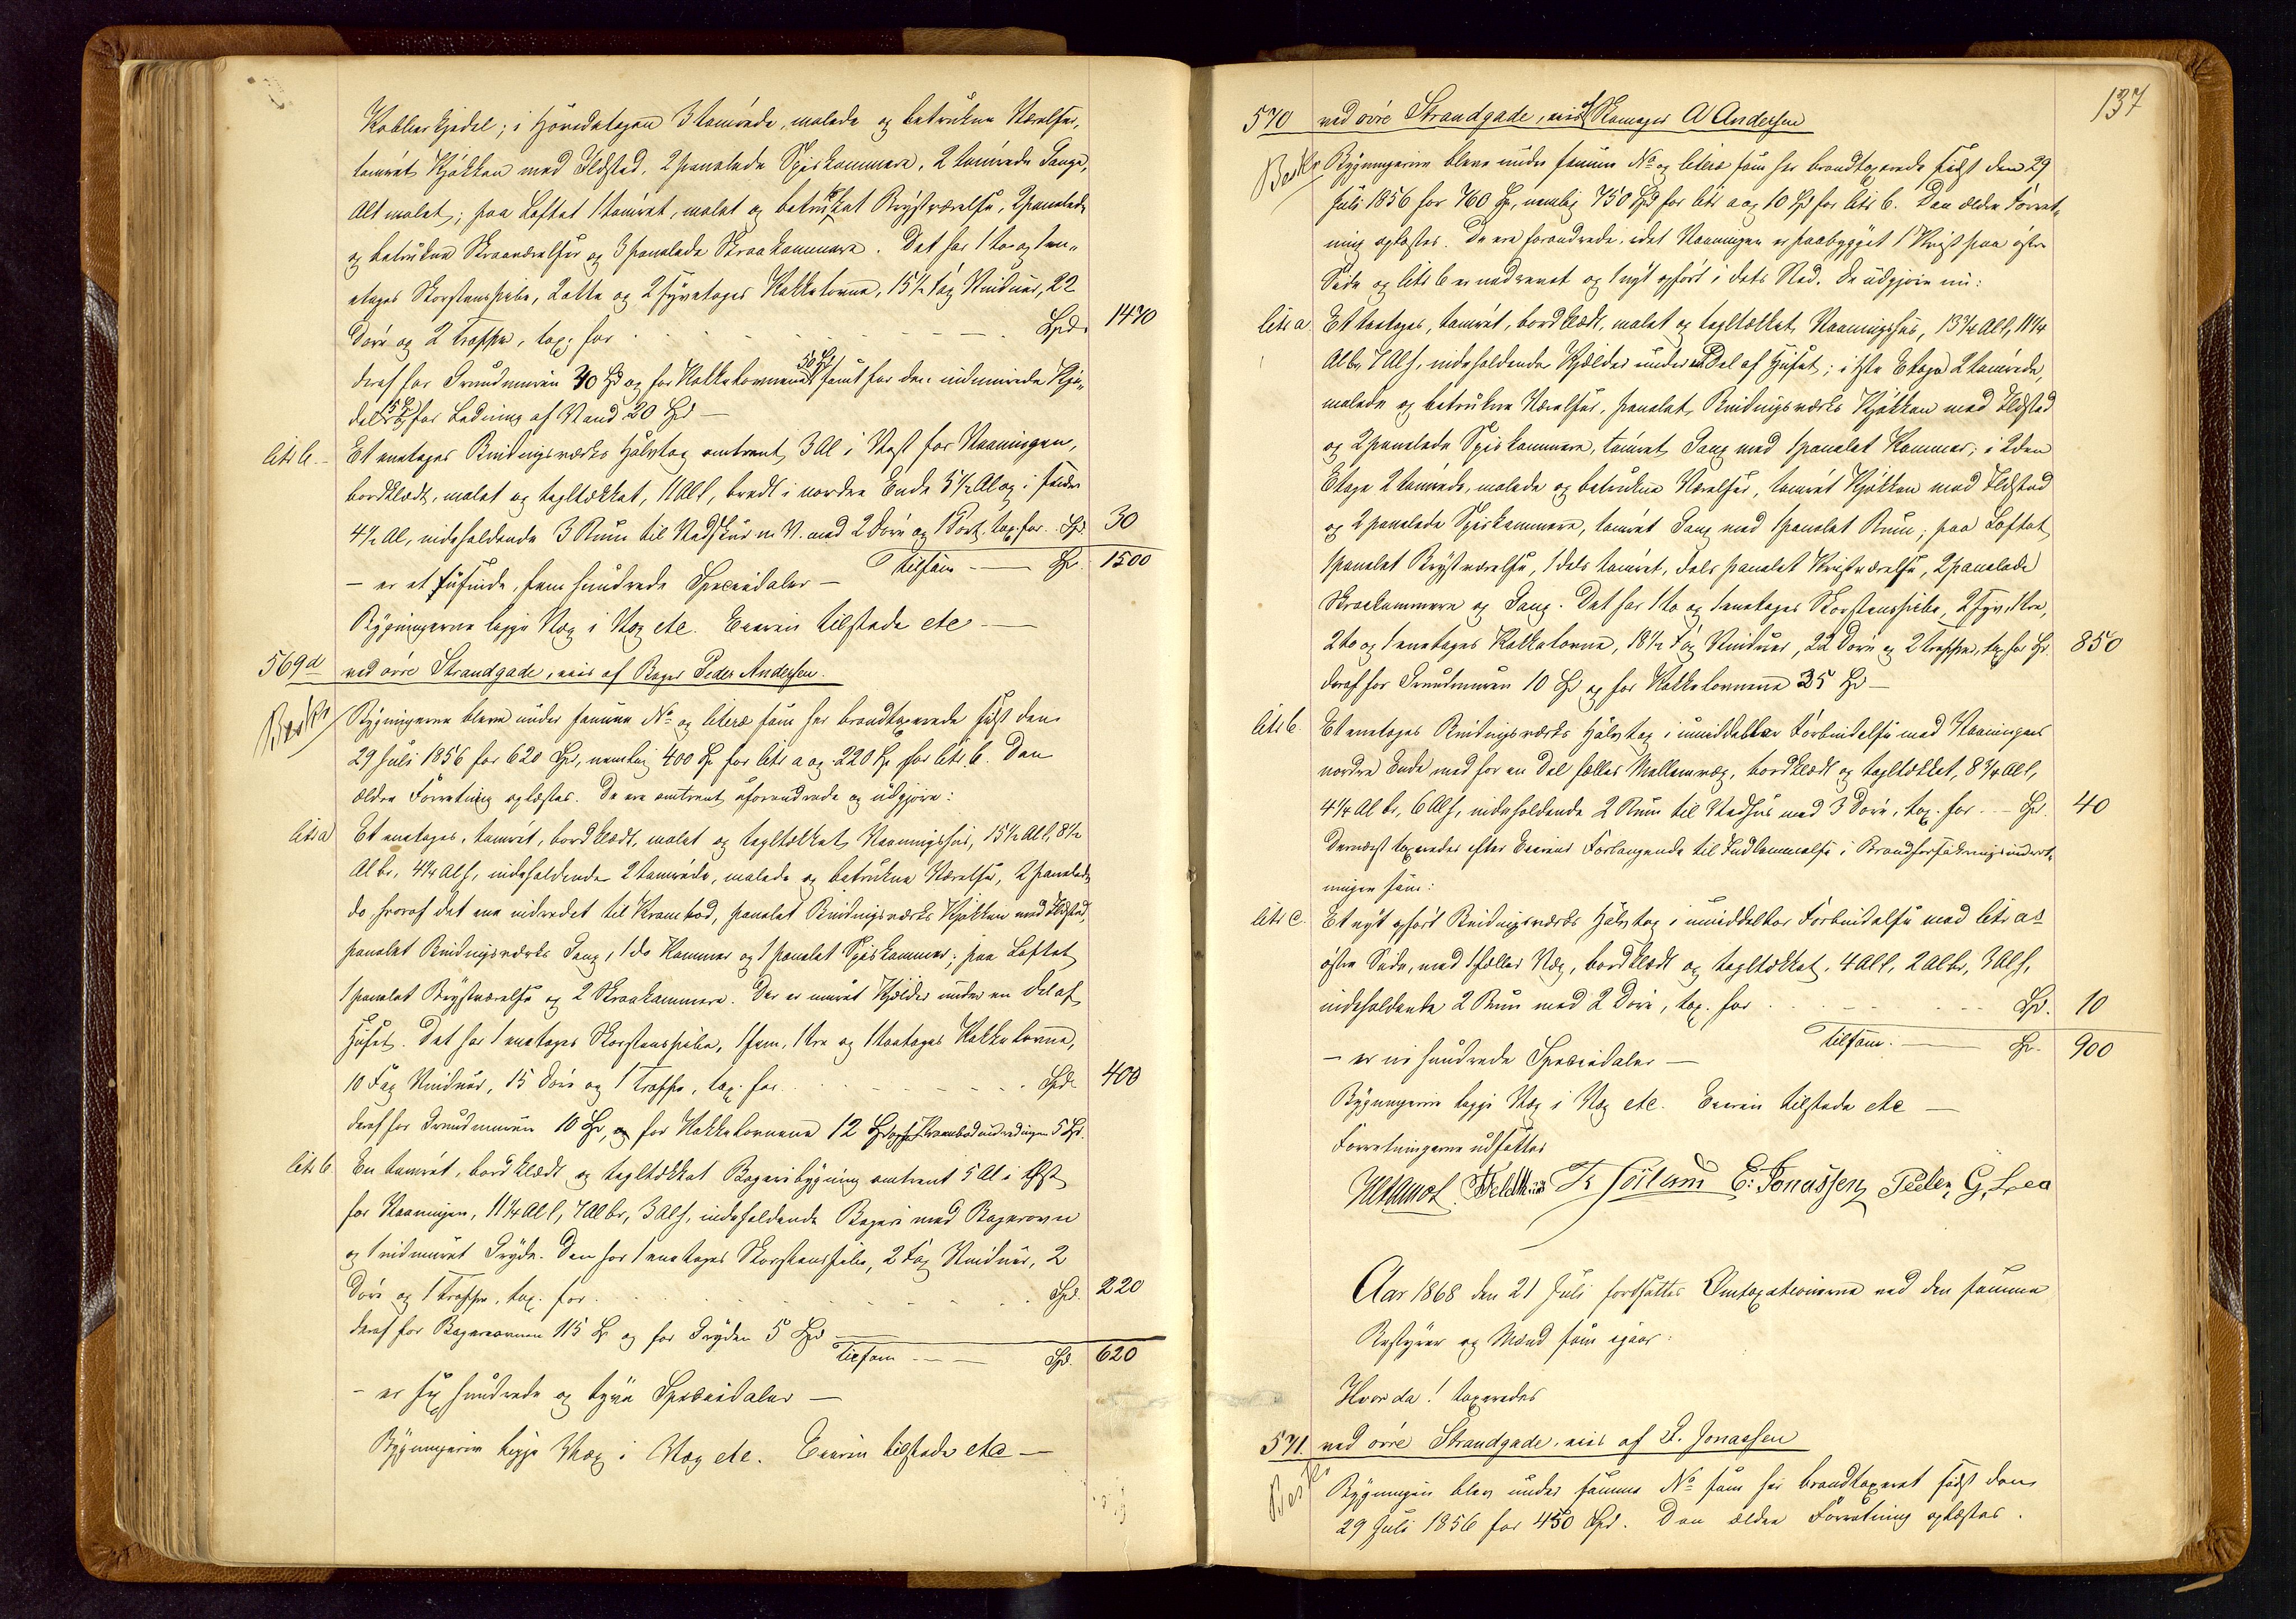 Kobberkjedel; i Hovedetagen 3 tømrede, malede og betrukne Værelser,
tømret Kjøkken med Ildsted, 2 panelede Spiskammere, 2 tømrede Gange,
Alt malet; paa Loftet 1 tømret, malet og betrukket Kvistværelse, 2 panelede
og betrukne Skraaværelser og 3 panelede Skraakammere. Det har 1 to og 1 en-
etages Skorstenspibe, 2 otte og 2 fyreetages Kakkelovne, 15½ Fag Vinduer, 22
Döre og 2 Trapper, tax. for Spd. 1470
deraf for Grundmuren 40 Spd og for Kakkelovnene 50 Spd samt for den indmurede Kje-
del 15 Spd, for Ledning af Vand 20 Spd —
litr b. Et enetages Bindingsværks Halvtag omtrent 3 Al i Vest for Vaaningen,
bordklædt, malet og tagltækket, 11 Al l, bredt i nordre Ende 5½ Al og i søndre
4½ Al, indeholdende 3 Rum til Vedskur m. V. med 2 Döre og 1 Port, tax. for Spd. 30
Tilsam — Sp. 1500
– er et tusinde, fem hundrede Speciedaler –
Bygningerne ligge Væg i Væg etc. Eieren tilstede etc —
569d ved övre Strandgade, eies af Bager Peder Andersen.
Bygningerne bleve under samme No og literæ som her brandtaxerede sidst den
29 Juli 1856 for 620 Spd, nemlig 400 Sp. for litr a og 220 Sp. for litr. b. Den
ældre Forretning oplæstes. De ere omtrent uforandrede og udgjøre:
litr a Et enetages, tømret, bordklædt, malet og tagltækket Vaaningshus, 15½ Al l, 8½
Al br, 4¼ Al h, indeholdende 2 tømrede, malede og betrukne Værelser, 2 panelede
do hvoraf det ene indredet til Krambod, panelet Bindingsværks Kjøkken med Ildsted,
panelet Bindingsværks Gang, 1 do Kammer og 1 panelet Spiskammer; paa Loftet
1 panelet Kvistværelse og 2 Skraakammere. Der er muret Kjelder under en Del af
Huset. Det har 1 enetages Skorstenspibe, 1 fem, 1 tre og 1 toetages Kakkelovne,
10 Fag Vinduer, 15 Döre og 1 Trappe, tax. for Spd. 400
deraf for Grundmuren 10 Sp, og for Kakkelovnene 12 Spd og for Krambodindredningen 5 Spd.
litr b En tømret, bordklædt og tagltækket Bageribygning omtrent 5 Al i Öst
for Vaaningen, 11¼ Al l, 7 Al br, 3 Al h, indeholdende Bageri med Bagerovn
og 1 indmuret Gryde. Den har 1 enetages Skorstenspibe, 2 Fag Vinduer, 2
Döre og 1 Trappe, tax. for Spd. 220
deraf for Bagerovnen 115 Sp. og for Gryden 5 Spd
Tilsam — Spd. 620
– er sex hundrede og tyve Speciedaler –
Bygningerne ligge Væg i Væg etc. Eieren tilstede etc —
137
570 ved övre Strandgade, eies af Skomager A Andersen
Bygningerne bleve under samme No og literæ som her brandtaxerede sidst den 29
Juli 1856 for 760 Sp, nemlig 750 Spd for litr a og 10 Spd for litr b. Den ældre Forret-
ning oplæstes. De ere forandrede, idet Vaaningen er paabygget 1 Kvist paa østre
Side og litr b er nedrevet og 1 nyt opført i dets Sted. De udgjøre nu:
litr a Et toetages, tømret, bordklædt, malet og tagltækket Vaaningshus, 13¾ Al l, 11¼
Al br, 7 Al h, indeholdende Kjelder under en Del af Huset; i 1ste Etage 2 tømrede,
malede og betrukne Værelser, panelet Bindingsværks Kjøkken med Ildsted
og 2 panelede Spiskammere, tømret Gang med 1 panelet Kammer; i 2den
Etage 2 tømrede, malede og betrukne Værelser, tømret Kjøkken med Ildsted
og 2 panelede Spiskammere, tømret Gang med 1 panelet Rum; paa Loftet
1 panelet Kvistværelse, 1 dels tømret, dels panelet Kvistværelse, 2 panelede
Skraakammere og Gang. Det har 1 to og 1 enetages Skorstenspibe, 2 fyre, 1 tre,
2 to og 1 enetages Kakkelovne, 18½ Fag Vinduer, 22 Döre og 2 Trapper, tax for Sp. 850
deraf for Grundmuren 10 Spd og for Kakkelovnene 35 Spd –
litr b. Et enetages Bindingsværks Halvtag i umiddelbar Forbindelse med Vaaningens
nordre Ende med for en Del fælles Mellemvæg, bordklædt og tagltækket, 8¾ Al l,
4¼ Al br, 6 Al h, indeholdende 2 Rum til Vedhus med 3 Döre, tax. for Spd. 40
Dernæst taxeredes efter Eierens Forlangende til Indlemmelse i Brandforsikringsindret-
ningen som:
litr c. Et nyt opført Bindingsværks Halvtag i umiddelbar Forbindelse med litr as
østre Side, med 1 fælles Væg, bordklædt og tagltækket, 4 Al l, 2 Al br, 3 Al h,
indeholdende 2 Rum med 2 Döre, tax. for Spd. 10
Tilsam. — Sp. 900
– er ni hundrede Speciedaler –
Bygningerne ligge Væg i Væg etc. Eieren tilstede etc –
Forretningerne udsattes
E. Jonassen Peder G. Lea
Aar 1868 den 21 Juli fortsattes Omtaxationerne ved den samme
Bestyrer og Mænd som igaar:
Hvor da! taxeredes
571. ved övre Strandgade, eies af S. Jonassen
Bygningen blev under samme No som her brandtaxeret sidst den
29 Juli 1856 for 450 Spd. Den ældre Forretning oplæstes.